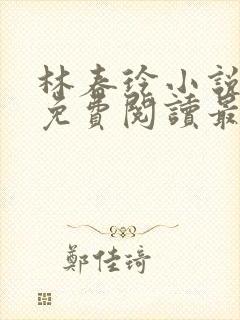 林春玲小說
免費閱讀最
鄭佳琦